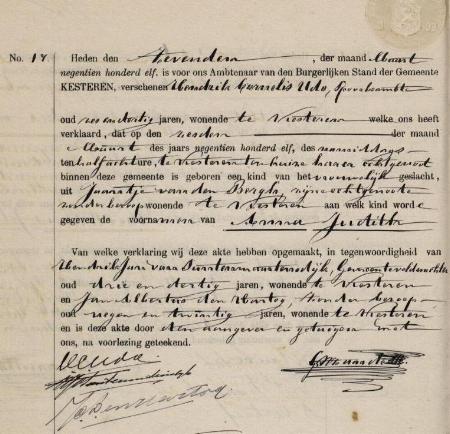 No. 17 Heden den zevenden, der maand Maart
negentien honderd elf, is voor ons Ambtenaar van den Burgerlijken Stand der Gemeente
KESTEREN, verschenen Hendrik Cornelis Udo,
oud jaren, wonende te Kesteren welke ons heeft
verklaard, dat op den zesden der maand
Maart des jaars negentien honderd elf, des namiddags
ten half acht ure, te Kesteren ten huize
binnen deze gemeente is geboren een kind van het vrouwelijk geslacht,
uit Jaantje van den Bergh, zijne echtgenoote
zonder beroep wonende te Kesteren aan welk kind worde
gegeven de voornamen van Anna Judith
Van welke verklaring wij deze akte hebben opgemaakt, in tegenwoordigheid van
Hendrik Jan van Gemeenteveldwachter
oud drie en dertig jaren, wonende te Kesteren
en Jan Albertus den Hartog, zonder beroep
oud negen en twintig jaren, wonende te Kesteren
en is deze akte door den aangever en getuigen met
ons, na voorlezing geteekend.
HC Udo
JA den Hartog